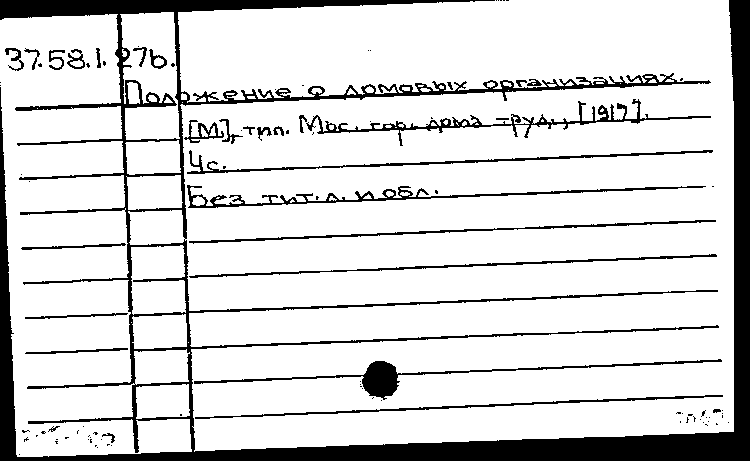 37.58.1.276.
Положение о домовых организациях.
[М], тип. Мос. гор. дома труд., [1917].
4с.
Без тит. л. и обл.